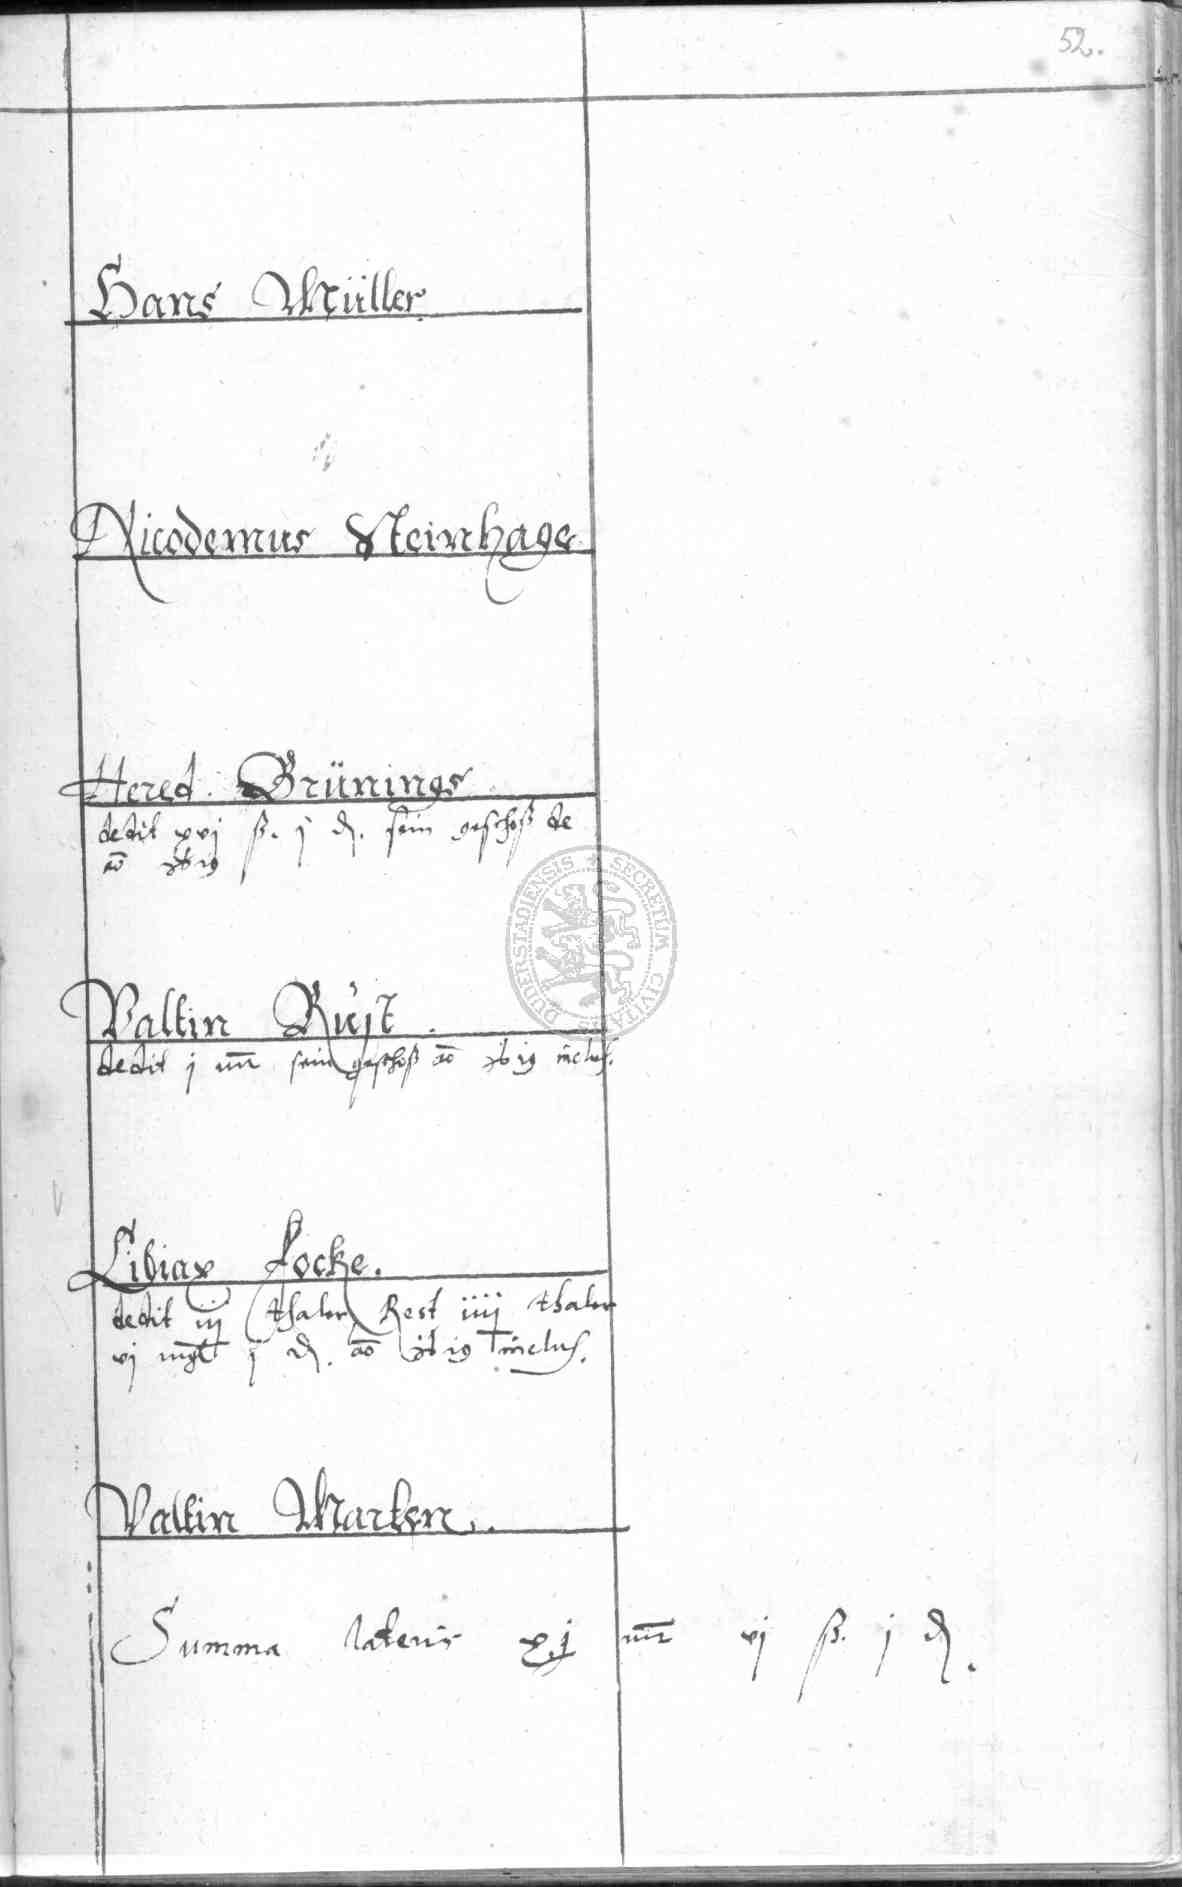 52.
Hans Müller
Nicodemus Steinhage
Hered. Brünings
dedit xvj ß. j d. sein geschoß de
ao
Valtin
dedit j mr sein geschoß ao inclus.
Ciliax Focke.
dedit iij thaler Rest iiij thaler
vj mgl j d. ao inclus.
Valtin Marten.
SECRETUM CIVITATIS DUDERSTADIENSIS
Summa lateris xj mr vj ß. j d.